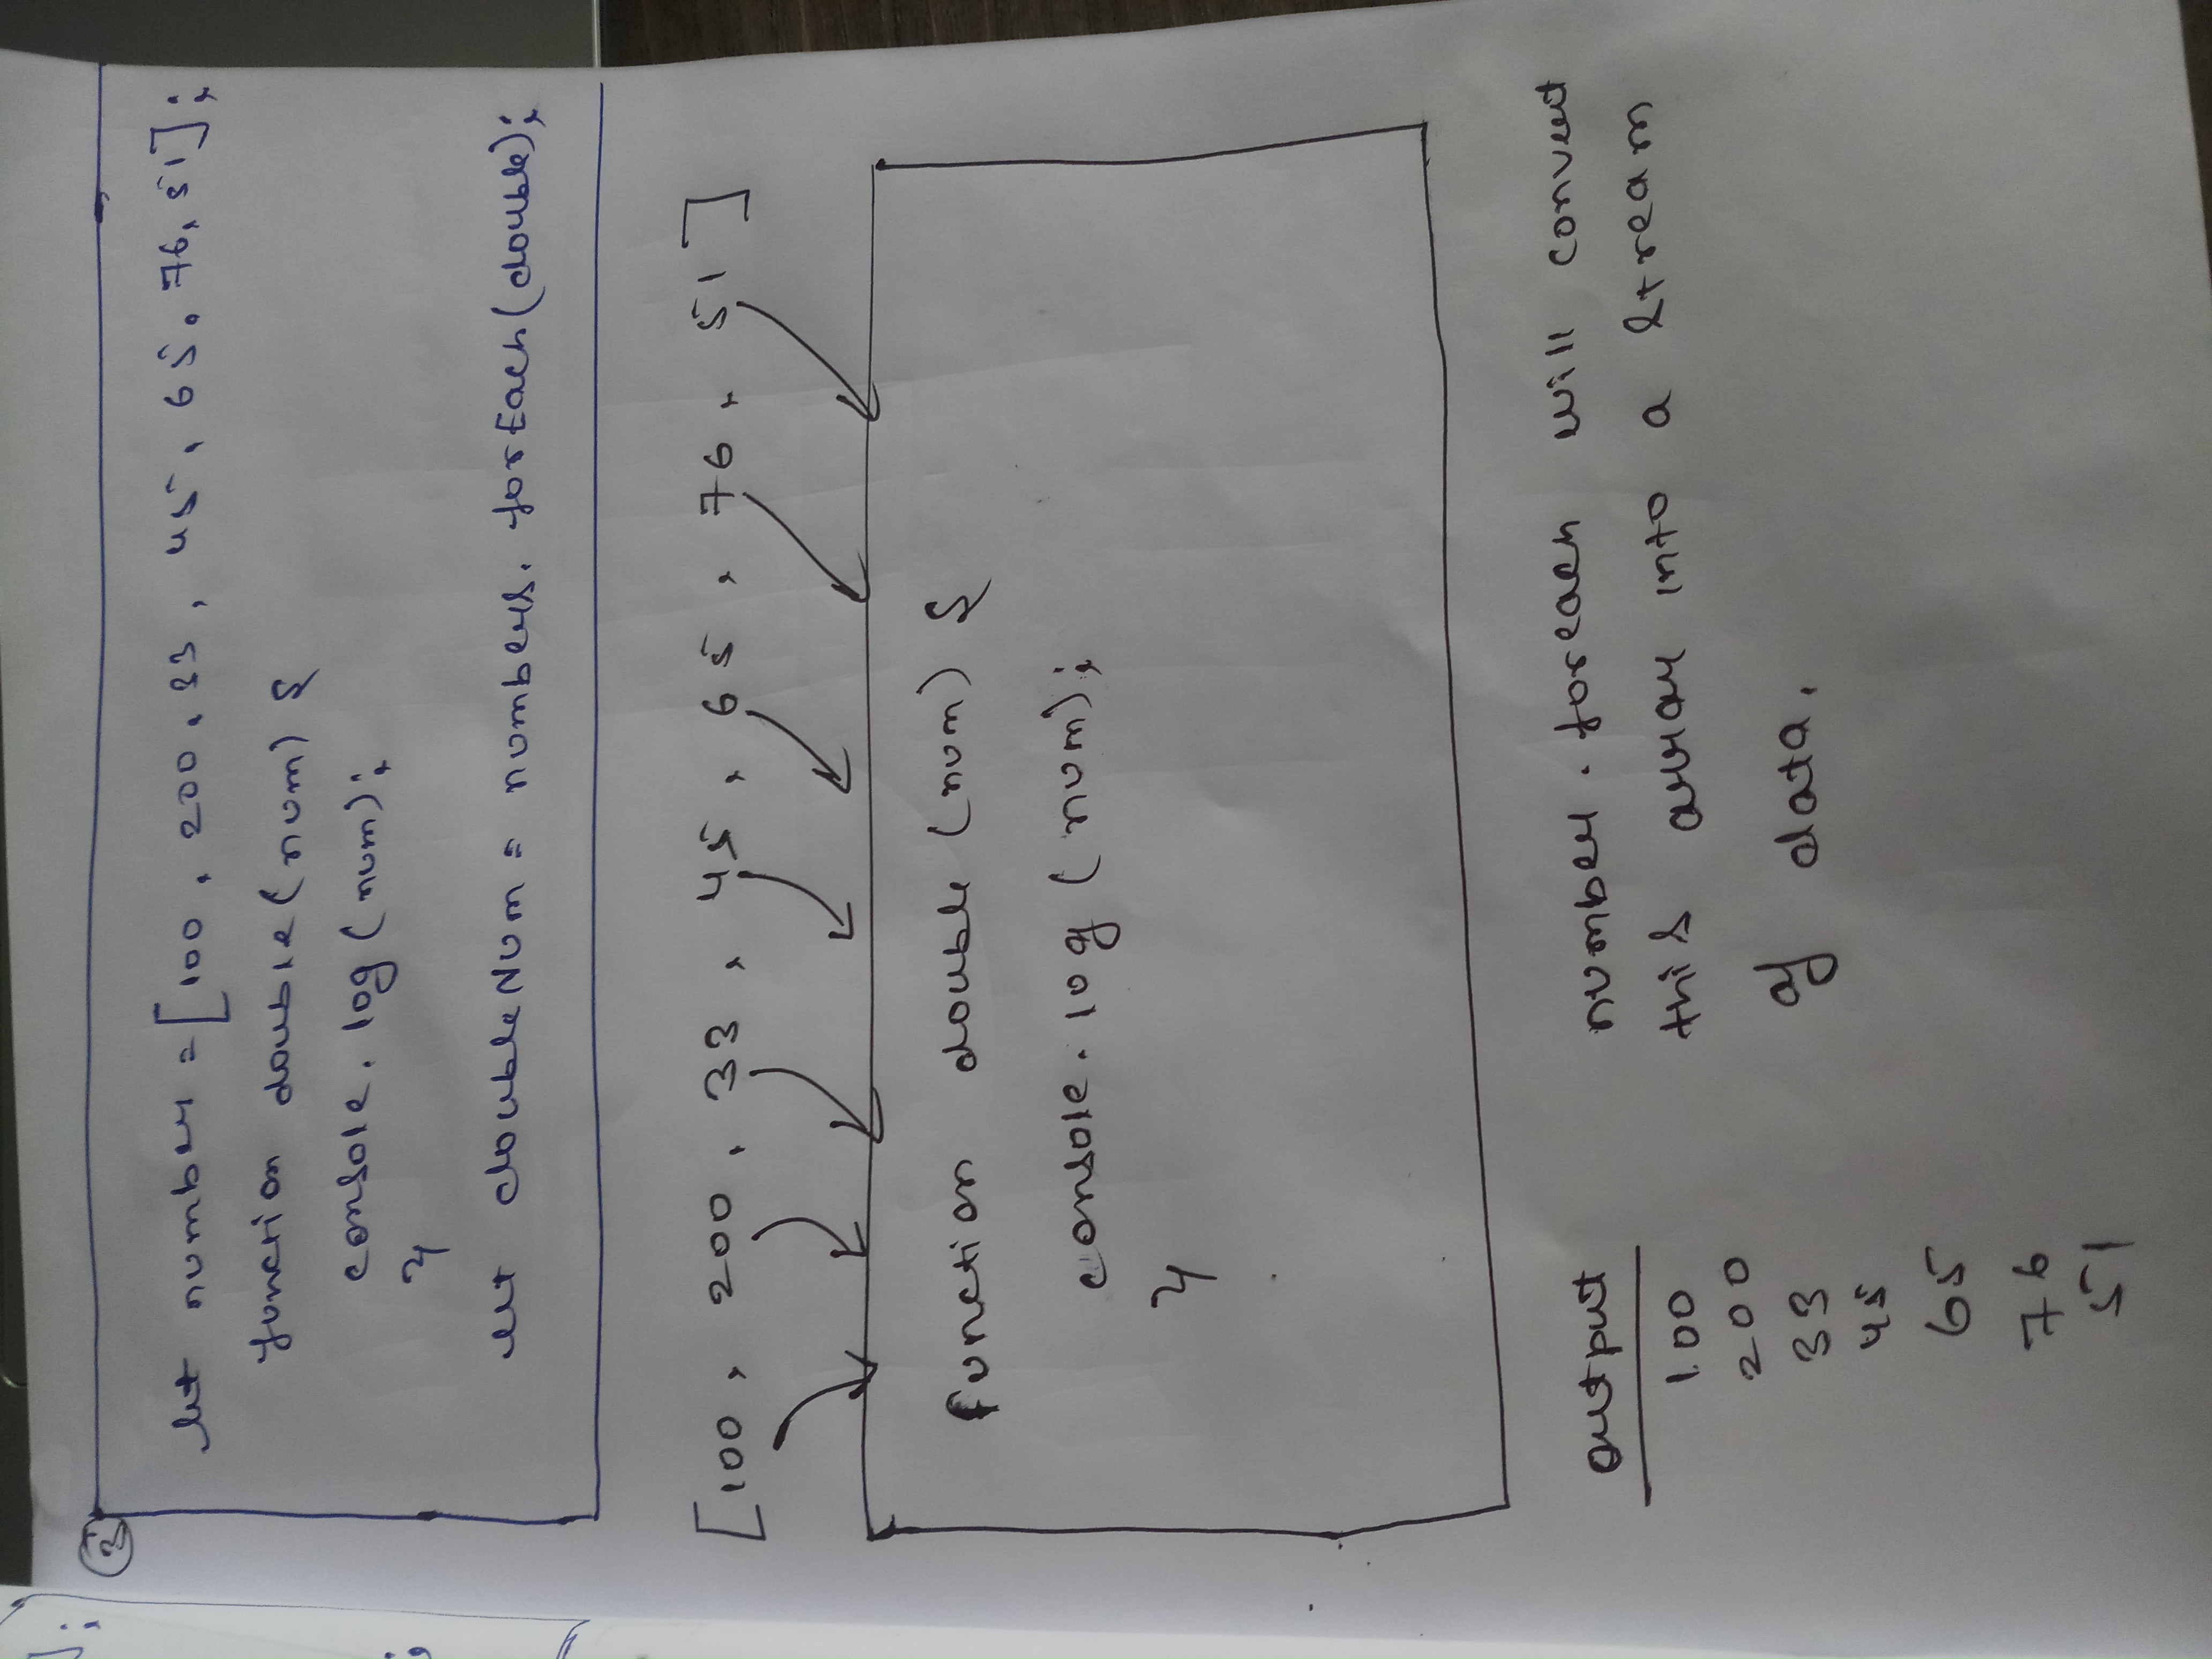 ];
;
3
let number = [100, 200, 33, 45, 65, 76, 51];
function double(num) {
console.log(num);
}
let doubleNum = numbers.forEach(double);
[100, 200, 33, 45, 65, 76, 51]
function double (num) {
console.log (num);
}
output
100
200
33
45
65
76
51
number.foreach will convert
this array into a stream
of data.